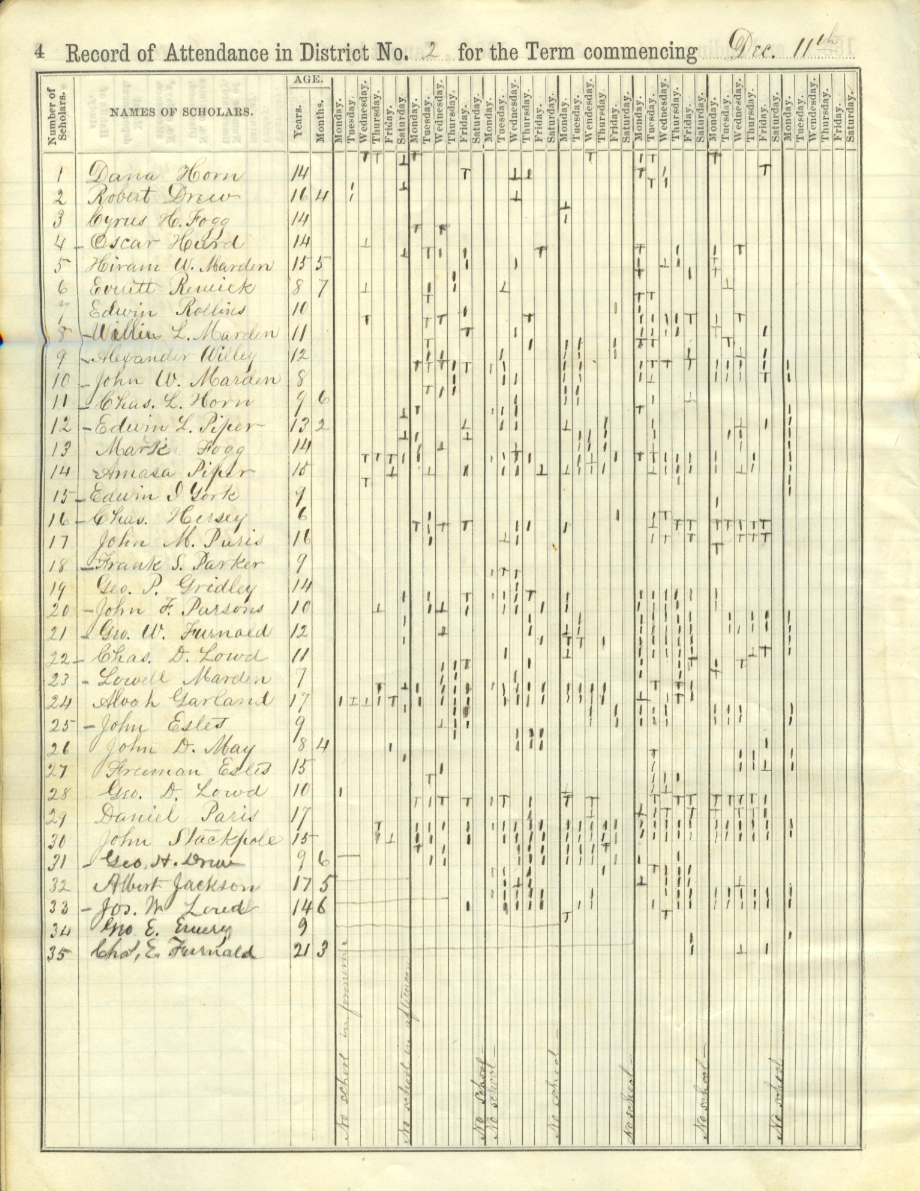 4 Record of Attendance in District No. 2 for the Term commencing Dec. 11th
Number of Scholars. NAMES OF SCHOLARS. AGE. Years. Months. Monday. Tuesday. Wednesday. Thursday. Friday. Saturday. Monday. Tuesday. Wednesday. Thursday. Friday. Saturday. Monday. Tuesday. Wednesday. Thursday. Friday. Saturday. Monday. Tuesday. Wednesday. Thursday. Friday. Saturday. Monday. Tuesday. Wednesday. Thursday. Friday. Saturday. Monday. Tuesday. Wednesday. Thursday. Friday. Saturday. Monday. Tuesday. Wednesday. Thursday. Friday. Saturday.
1 Dana Horn 14
2 Robert Drew 16 4
3 Cyrus H. Fogg 14
4 - Oscar Hurd 14
5 Hiram W. Marden 15 5
6 Everitt Renick 8 7
7 Edwin Rollins 10
8 - Willie L. Marden 11
9 - Alexander Willey 12
10 - John W. Marden 8
11 - Chas. L. Horn 9 6
12 - Edwin L. Piper 13 2
13 Mark Fogg 14
14 - Amasa Piper 15
15 - Edwin D York 9
16 - Chas. Hersey 6
17 John M. Paris 16
18 - Frank S. Parker 9
19 Geo. P. Gridley 14
20 - John F. Parsons 10
21 - Geo. W. Furnald 12
22 - Chas. D. Lowd 11
23 - Lowell Marden 7
24 Garland 17
25 - John Estes 9
26 John D. May 8 4
27 Freeman Estes 15
28 Geo. D. Lowd 10
29 Daniel Paris 17
30 John Stackpole 15
31 - Geo. H. Drew 9 6
32 Albert Jackson 17 5
33 - Jos. W. Loued 14 6
34 Geo E. Emery 9
35 Chas, E. Furnald 21 3
No school in forenoon
No school in afternoon
No school
No school
No school
No school
No school
No school